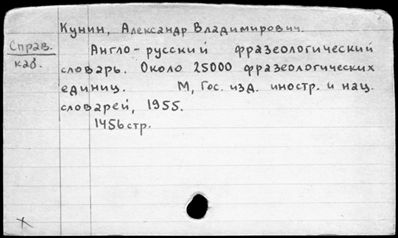 Кунин, Александр Владимирович.
Справ.
каб.
Англо-русский фразеологический
словарь. Около 25000 фразеологических
единиц. М, Гос. изд. иностр. и нац.
словарей, 1955.
1456 стр.